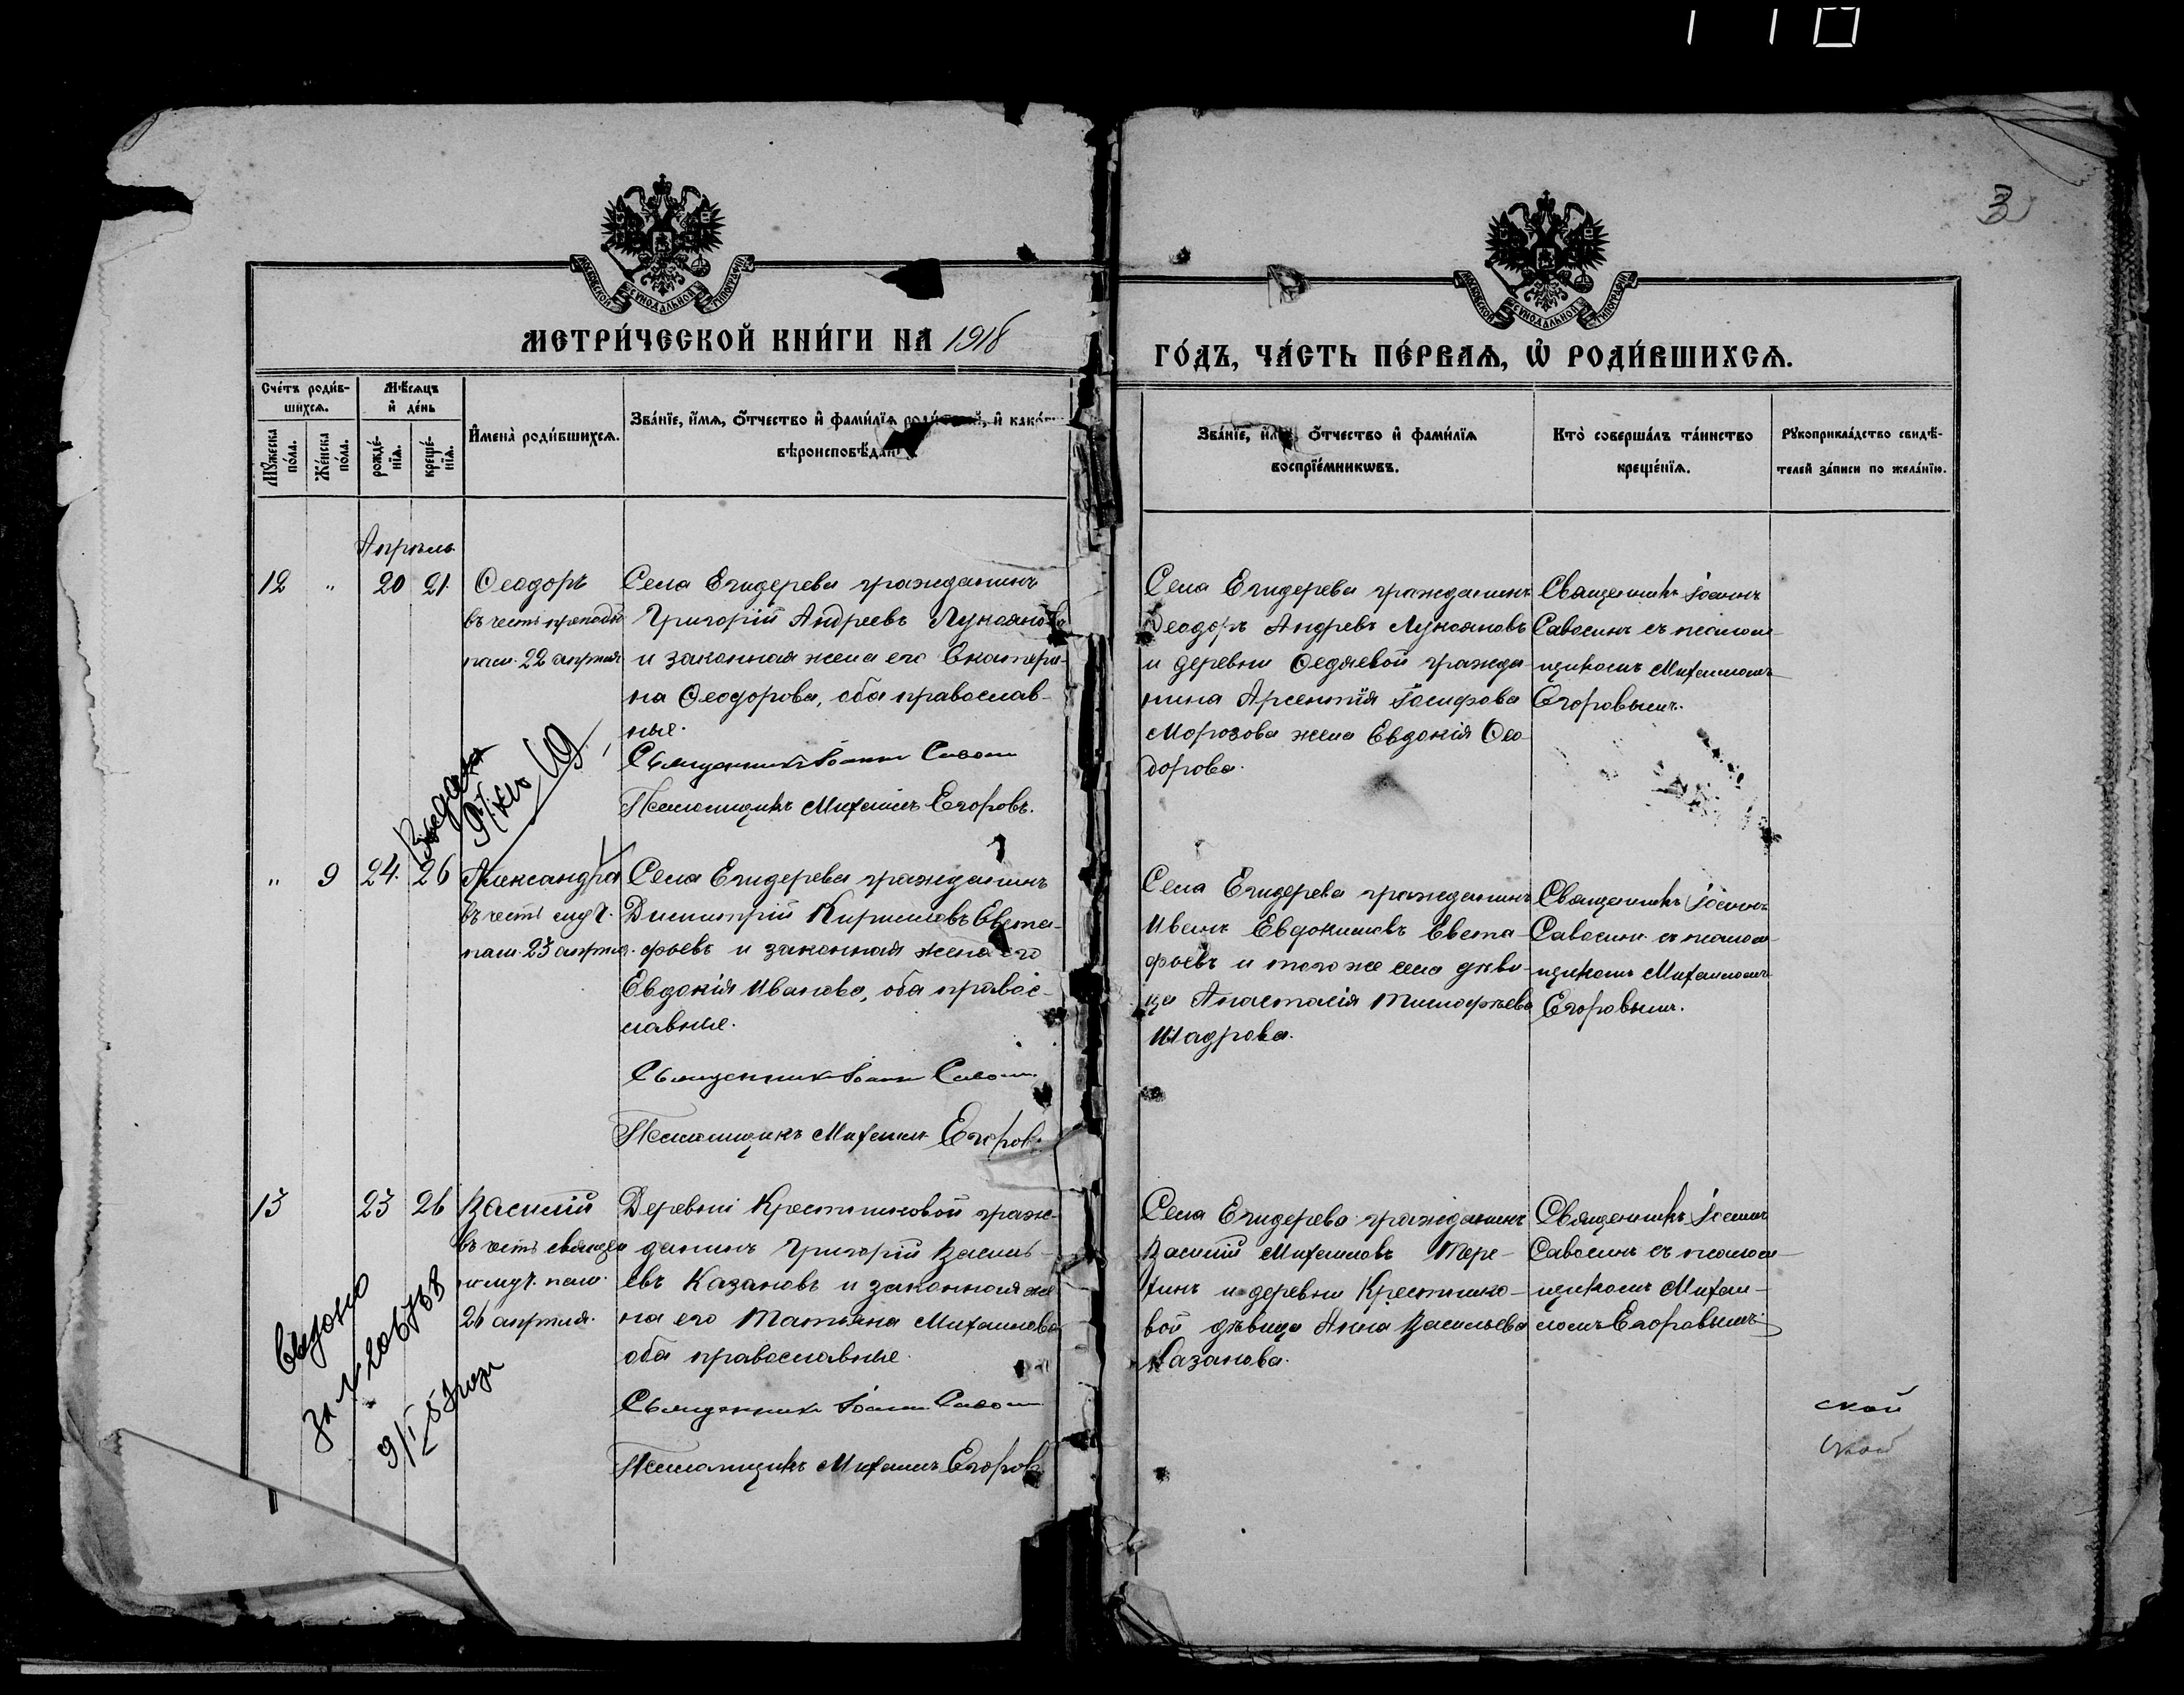 3
МОСКОВСКОЙ СѴНОДАЛЬНОЙ ТИПОГРАФІИ
МОСКОВСКОЙ СѴНОДАЛЬНОЙ ТИПОГРАФІИ
МЕТРИ́ЧЕСКОЙ КНИ́ГИ НА 1918
ГО́ДЪ, ЧА́СТЬ ПЕ́РВАѦ, Ѡ҆ РОДИ́ВШИХСѦ.
Сче́тъ роди́в-
шихсѧ.
Мꙋ́жеска по́ла.
Же́нска по́ла.
Мѣ́сѧцъ
и҆ де́нь
рожде́-
нїѧ.
креще́-
нїѧ.
И҆мена̀ роди́вшихсѧ.
Зва́нїе, и҆́мѧ, ѻ҆́тчество и҆ фами́лїѧ роди́телей, и҆ како́гѡ
вѣроисповѣ́данїѧ.
Зва́нїе, и҆́мѧ, ѻ҆́тчество и҆ фами́лїѧ
воспрїе́мникѡвъ.
Кто̀ соверша́лъ та́инство
креще́нїѧ.
Рꙋкоприкла́дство свидѣ́-
телей за́писи по жела́нїю.
Апрѣль
12 " 20 21.
Ѳеодоръ
въ честь преподоб
пам. 22 апрѣля
Села Егидерева гражданинъ
Григорій Андреевъ Лукояновъ
и законная жена его Екатери-
на Ѳеодорова, оба православ-
ные.
Священникъ Іоаннъ Савосин
Псаломщикъ Михаилъ Егоровъ.
Села Егидерева гражданинъ
Ѳеодоръ Андревъ Лукояновъ
и деревни Ѳедяевой гражда-
нина Арсентія Іосифова
Морозова жена Евдокія Ѳео-
дорова.
Священникъ Іоаннъ
Савосинъ съ псалом-
щикомъ Михаиломъ
Егоровымъ.
Выдана
" 9 24. 26
Александра
въ честь муч.
пам. 23 апрѣля.
Села Егидерева гражданинъ
Димитрій Кирилловъ Евста-
фьевъ и законная жена его
Евдокія Иванова, оба правос-
лавные.
Священникъ Іоаннъ Савосин
Псаломщикъ Михаилъ Егоровъ
Села Егидерева гражданинъ
Иванъ Евдокимовъ Евста-
фьевъ и того же села дѣви-
ца Анастасія Тимофѣева
Шадрова.
Священникъ Іоаннъ
Савосинъ съ псалом-
щикомъ Михаиломъ
Егоровымъ.
13 23 26
Василій
въ честь священ
номуч. пам.
26 апрѣля.
Деревни Крестниковой граж-
данинъ Григорій Василь-
евъ Казановъ и законная же
на его Татьяна Михаилова
оба православные.
Священникъ Іоаннъ Савосин
Псаломщикъ Михаилъ Егоровъ
Села Егидерева гражданинъ
Василій Михаиловъ Тере-
хинъ и деревни Крестнико-
вой дѣвица Анна Васильева
Казанова.
Священникъ Іоаннъ
Савосинъ съ псалом-
щикомъ Михаи-
ломъ Егоровымъ
Выдано
ской
ской